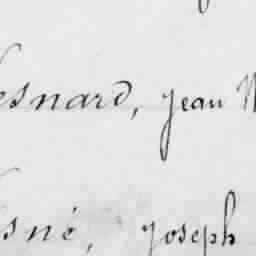 esnard, Jean
sné, Joseph